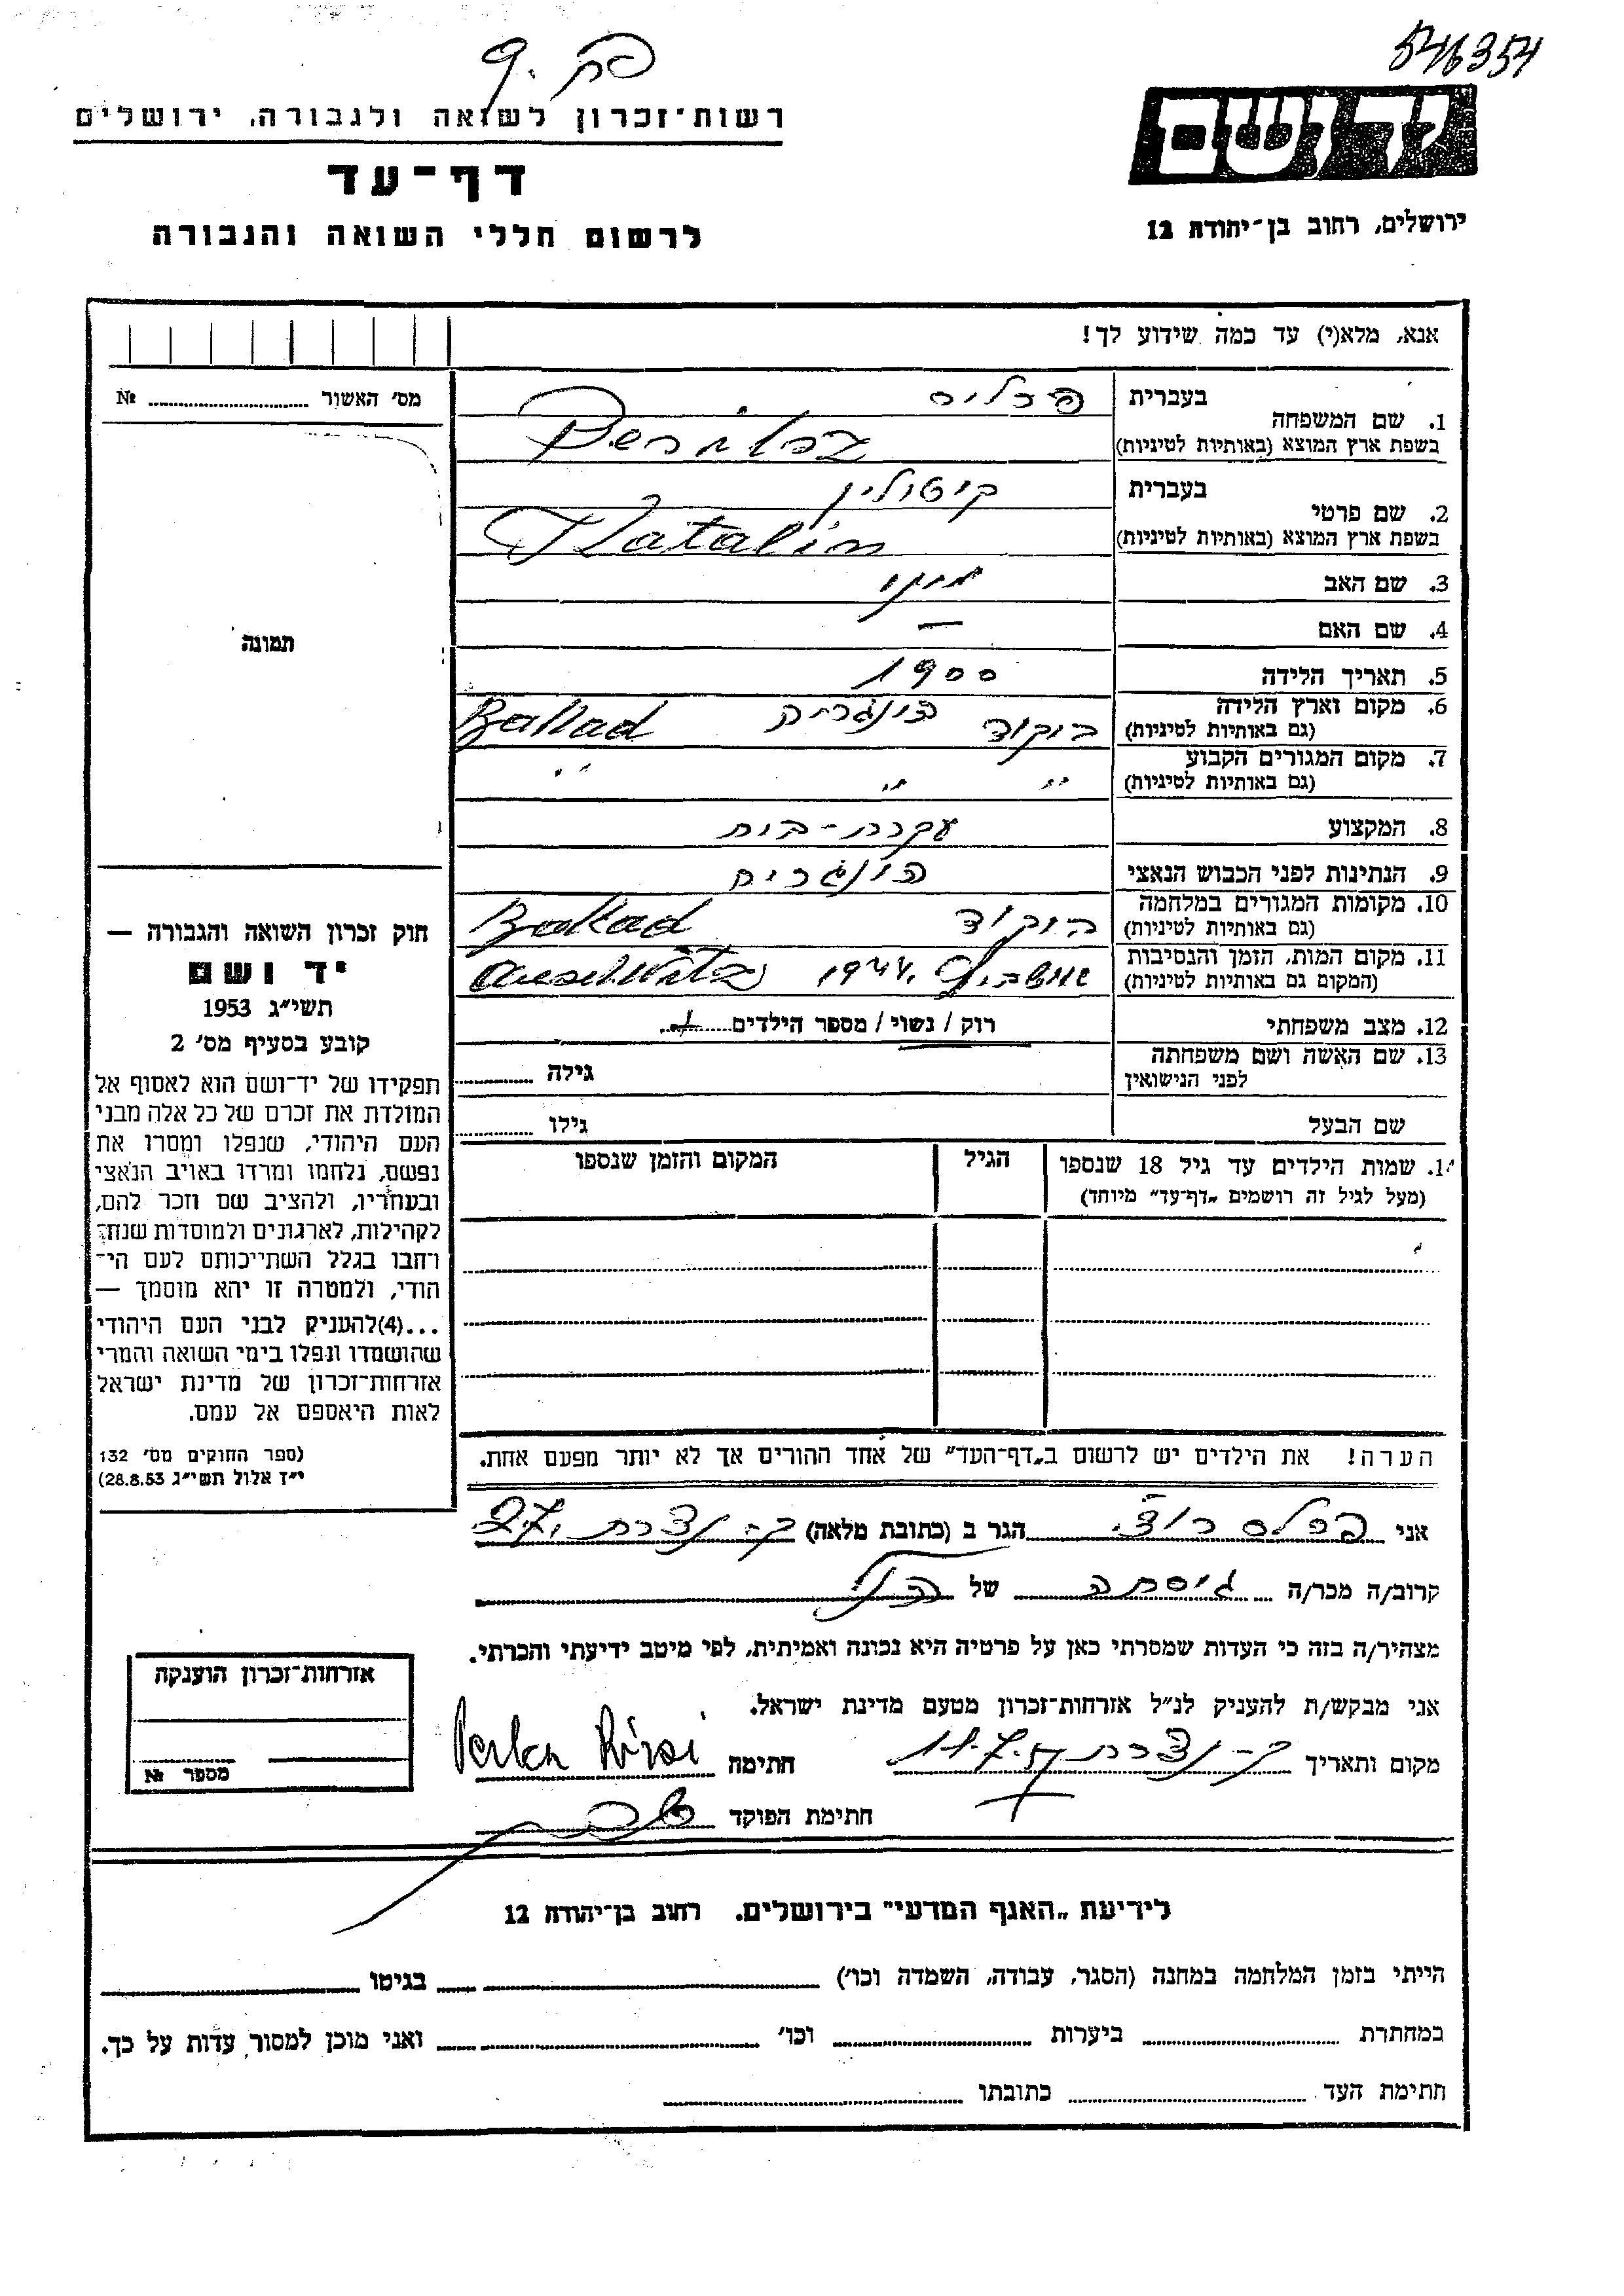 546354
יד ושם
ירושלים, רחוב בן־יהודה 12
רשות־זכרון לשואה ולגבורה, ירושלים
דף־עד
לרשום חללי השואה והגבורה
אנא, מלא(י) עד כמה שידוע לך!
מס׳ האשור № 
1. שם המשפחה
בעברית
בשפת ארץ המוצא (באותיות לטיניות)
2. שם פרטי
בעברית
קטולין
בשפת ארץ המוצא (באותיות לטיניות)
Katalin
3. שם האב
4. שם האם —
5. תאריך הלידה 1900
6. מקום וארץ הלידה
(גם באותיות לטיניות)
הונגריה
7. מקום המגורים הקבוע
(גם באותיות לטיניות) " " "
8. המקצוע עקרת-בית
9. הנתינות לפני הכבוש הנאצי הונגרית
10. מקומות המגורים במלחמה
(גם באותיות לטיניות)
11. מקום המות, הזמן והנסיבות
(המקום גם באותיות לטיניות)
1944 Auschwitz
12. מצב משפחתי רוק / נשוי / מספר הילדים
13. שם האשה ושם משפחתה
לפני הנישואין גילה
שם הבעל גילו
14. שמות הילדים עד גיל 18 שנספו
(מעל לגיל זה רושמים „דף־עד” מיוחד)
הגיל
המקום והזמן שנספו
הערה! את הילדים יש לרשום ב„דף־העד” של אחד ההורים אך לא יותר מפעם אחת.
תמונה
חוק זכרון השואה והגבורה —
יד ושם
תשי״ג 1953
קובע בסעיף מס׳ 2
תפקידו של יד־ושם הוא לאסוף אל
המולדת את זכרם של כל אלה מבני
העם היהודי, שנפלו ומסרו את
נפשם, נלחמו ומרדו באויב הנאצי
ובעוזריו, ולהציב שם וזכר להם,
לקהילות, לארגונים ולמוסדות שנח־
רחבו בגלל השתייכותם לעם הי־
הודי, ולמטרה זו יהא מוסמך —
...(4)להעניק לבני העם היהודי
שהושמדו ונפלו בימי השואה והמרי
אזרחות־זכרון של מדינת ישראל
לאות היאספם אל עמם.
(ספר החוקים מס׳ 132
י״ז אלול תשי״ג 28.8.53)
אני הגר ב (כתובת מלאה) ק-נצרת 27
קרוב/ה מכר/ה גיסתה של הנ"ל
מצהיר/ה בזה כי העדות שמסרתי כאן על פרטיה היא נכונה ואמיתית, לפי מיטב ידיעתי והכרתי.
אני מבקש/ת להעניק לנ״ל אזרחות־זכרון מטעם מדינת ישראל.
מקום ותאריך ק-נצרת חתימה
חתימת הפוקד
אזרחות־זכרון הוענקה
מספר №
לידיעת „האגף המדעי” בירושלים, רחוב בן־יהודה 12
הייתי בזמן המלחמה במחנה (הסגר, עבודה, השמדה וכו׳) בגיטו
במחתרת ביערות וכו׳ ואני מוכן למסור עדות על כך.
חתימת העד כתובתו